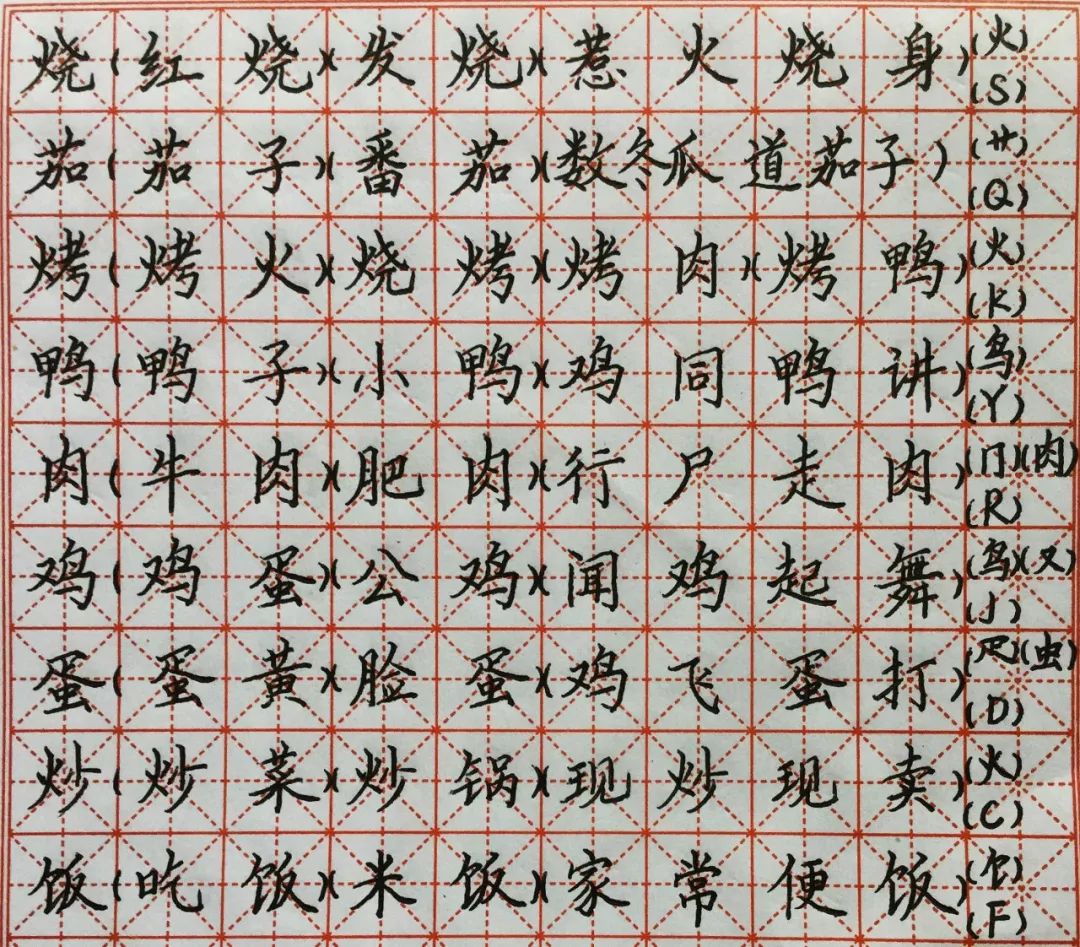 烧(红烧)(发烧)(惹火烧身)(火)(S)
茄(茄子)(番茄)(数冬瓜道茄子)(艹)(Q)
烤(烤火)(烧烤)(烤肉)(烤鸭)(火)(K)
鸭(鸭子)(小鸭)(鸡同鸭讲)(鸟)(Y)
肉(牛肉)(肥肉)(行尸走肉)(冂)(肉)(R)
鸡(鸡蛋)(公鸡)(闻鸡起舞)(鸟)(又)(J)
蛋(蛋黄)(脸蛋)(鸡飞蛋打)(疋)(虫)(D)
炒(炒菜)(炒锅)(现炒现卖)(火)(C)
饭(吃饭)(米饭)(家常便饭)(饣)(F)